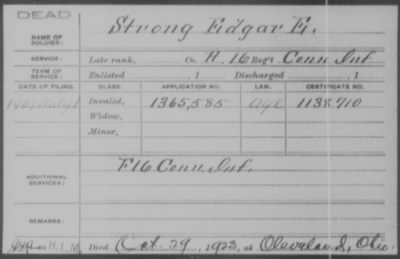 DEAD
NAME OF SOLDIER: Strong Edgar E.
SERVICE: Late rank, Co. H. 16 Reg't Conn. Inf.
TERM OF SERVICE: Enlisted . 1 Discharged . 1
DATE OF FILING. CLASS. APPLICATION NO. LAW. CERTIFICATE NO.
Invalid, 1365,585 Age 1138710
Widow,
Minor,
ADDITIONAL SERVICES: F 16 Conn. Inf.
REMARKS:
H. L. M. Died Oct. 29, 1923, at Cleveland, Ohio.